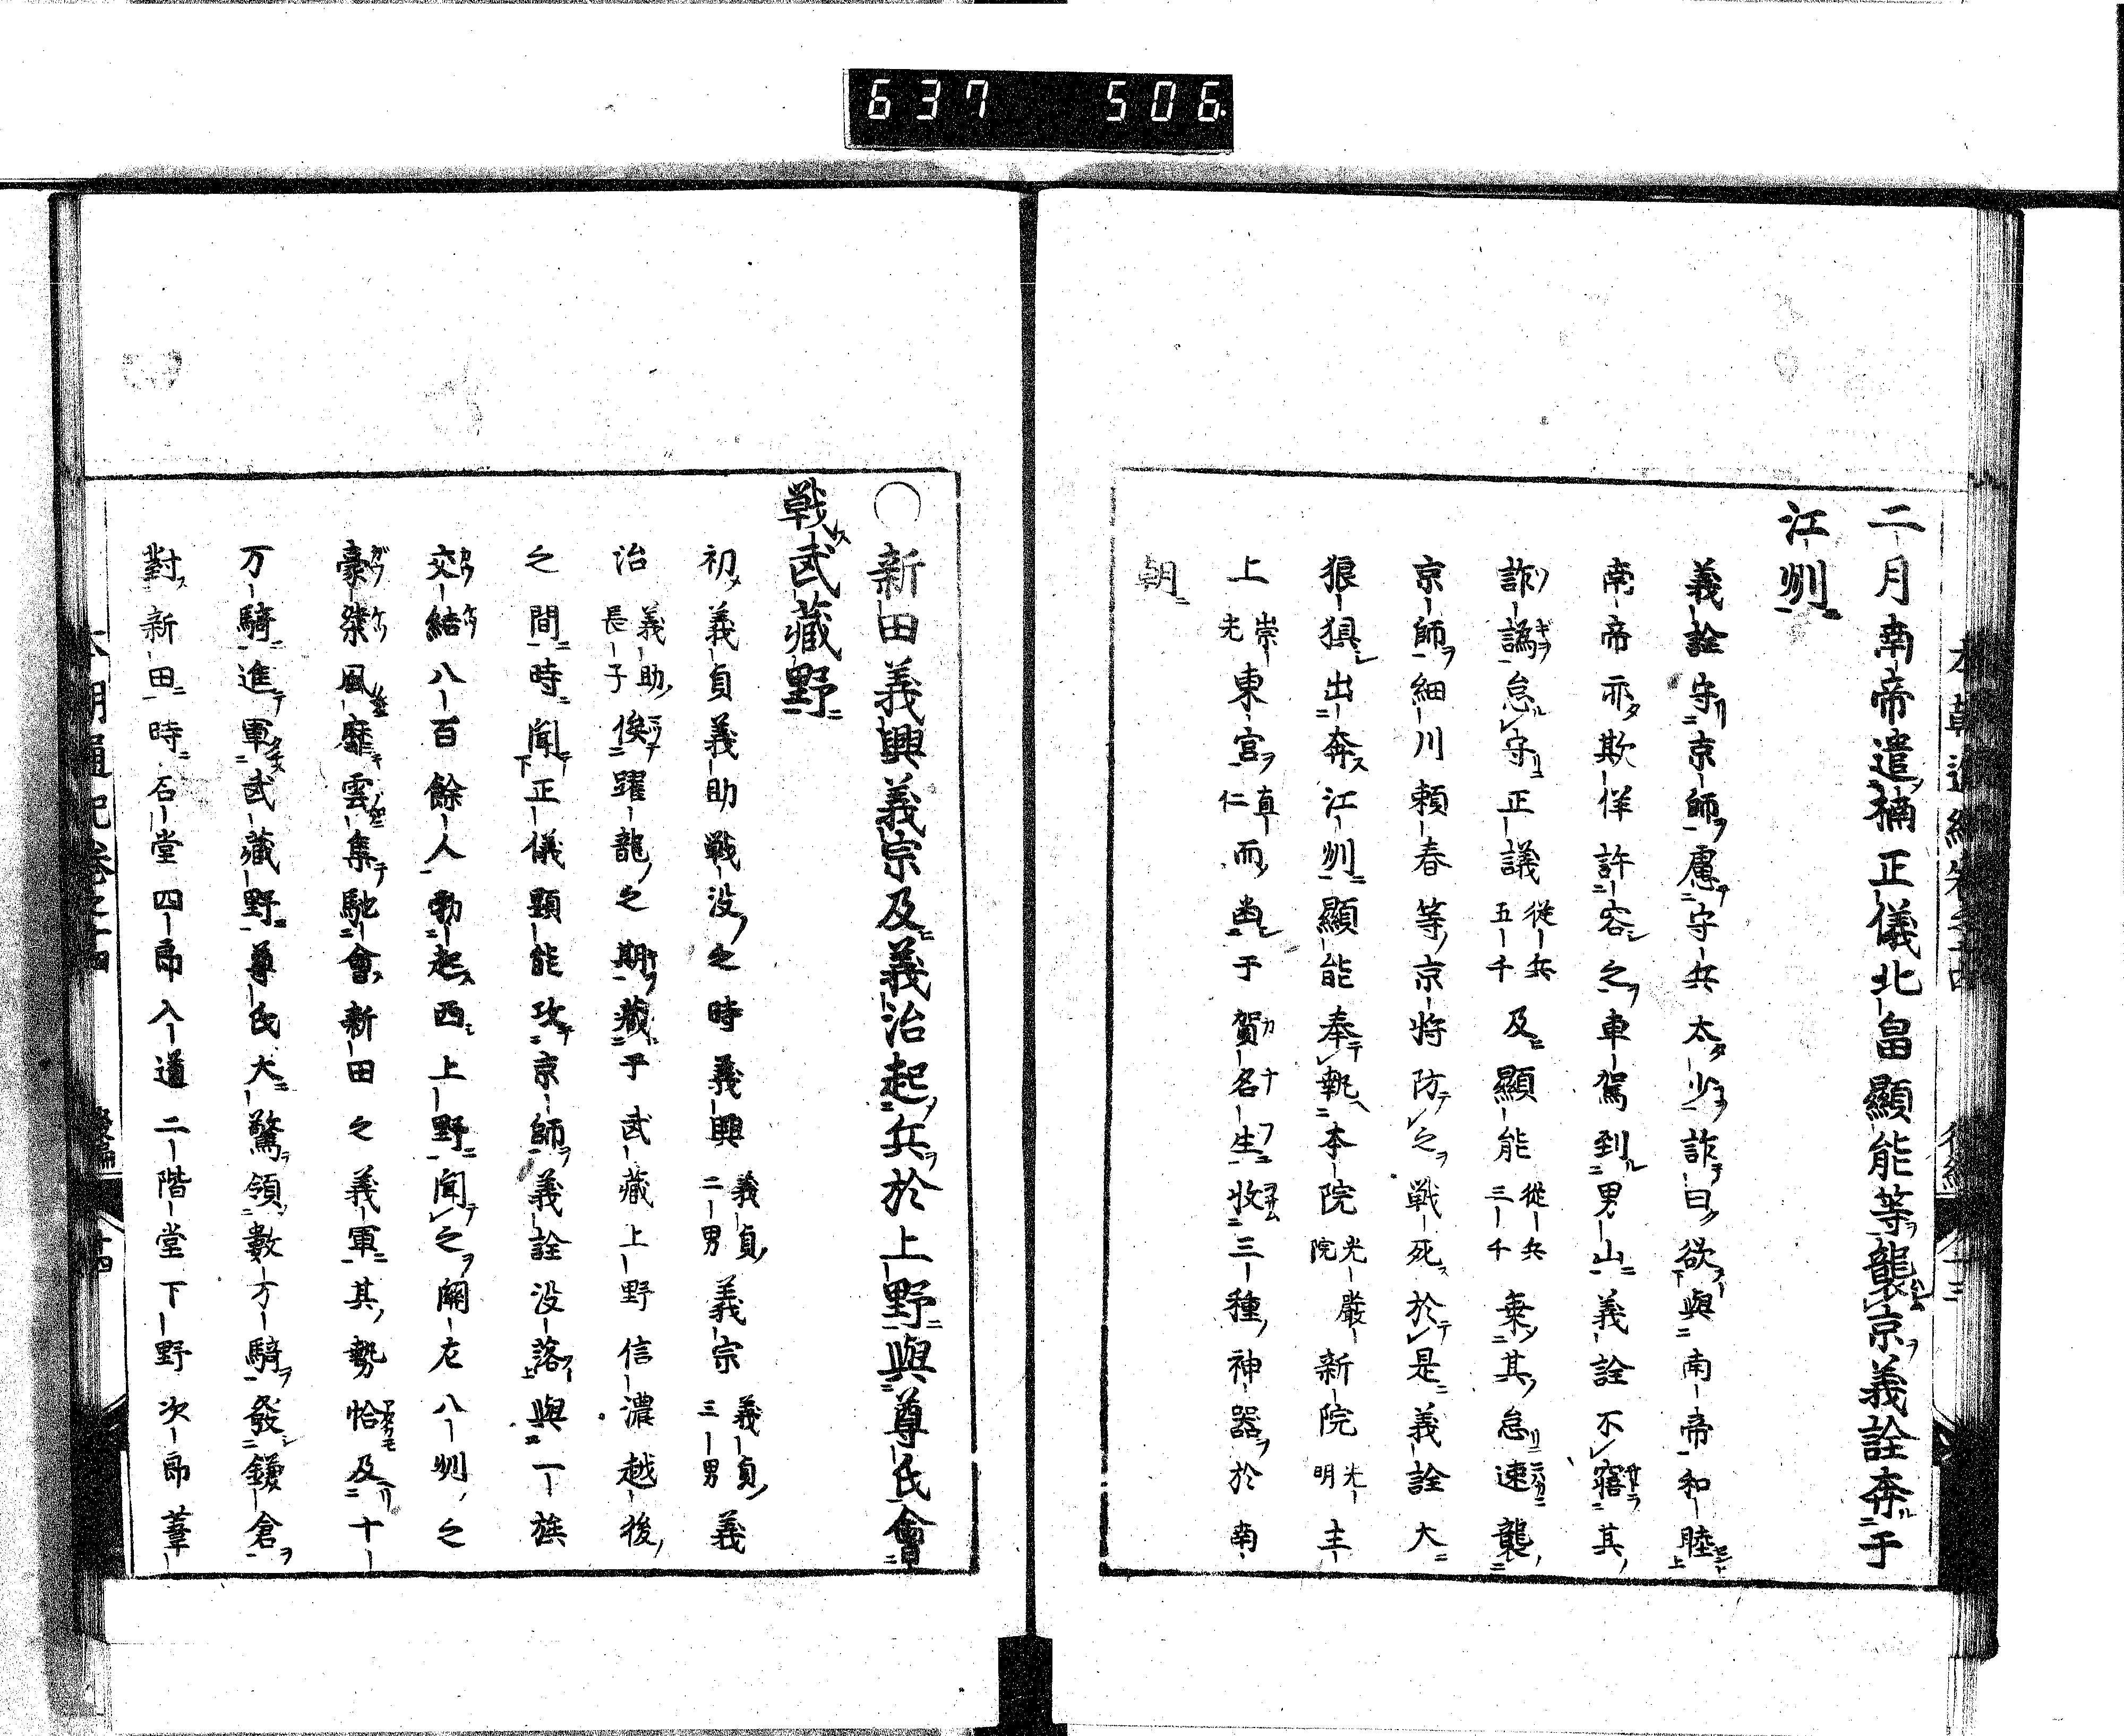 637 506
二月南帝遣楠正儀北畠顯能等襲京義詮奔于
江州
義詮守京師慮守兵太少詐曰欲與南帝和睦
南帝亦欺佯許容之車駕到男山義詮不寤其
詐譌怠守正議從兵五千及顯能從兵三千乗其怠速襲
京師細川頼春等京將防之戰死於是義詮大
狼狽出奔江州顯能奉執本院光嚴院新院光明主
上崇光東宮直仁而幽于賀名生收三種神器於南
朝
○新田義興義宗及義治起兵於上野與尊氏會
戰武藏野
初義貞義助戰没之時義興義貞二男義宗義貞三男義
治義助長子俟躍龍之期藏于武藏上野信濃越後
之間時聞正儀顯能攻京師義詮没落與一族
交結八百餘人勃起西上野聞之關左八州之
豪桀風靡雲集馳會新田之義軍其勢恰及十
万騎進軍武藏野尊氏大驚領數万騎發鎌倉
對新田時石堂四郎入道二階堂下野次郎葦